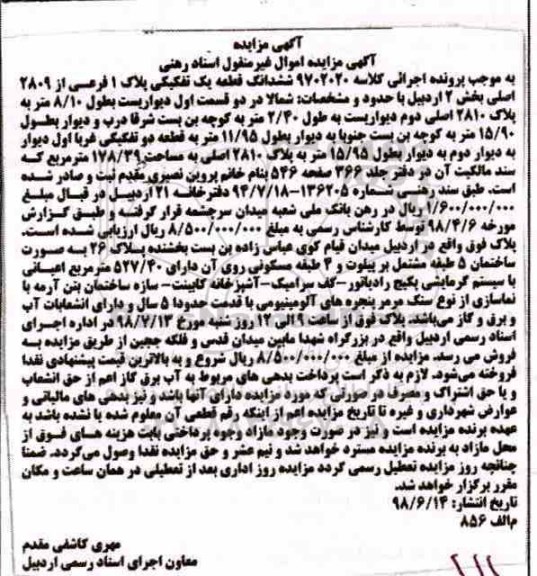 آگهی مزایده
آگهی مزایده اموال غیرمنقول اسناد رهنی
به موجب پرونده اجرائی کلاسه ۹۷۰۲۰۲۰ ششدانگ قطعه یک تفکیکی پلاک ۱ فرعی از ۲۸۰۹
اصلی بخش ۲ اردبیل با حدود و مشخصات: شمالا در دو قسمت اول دیواریست بطول ۸/۱۰ متر به
پلاک ۲۸۱۰ اصلی دوم دیواریست به طول ۲/۴۰ متر به کوچه بن بست شرقا درب و دیوار بطول
۱۵/۹۰ متر به کوچه بن بست جنوبا به دیوار بطول ۱۱/۹۵ متر به قطعه دو تفکیکی غربا اول دیوار
به دیوار دوم به دیوار بطول ۱۵/۹۵ متر به پلاک ۲۸۱۰ اصلی به مساحت ۱۷۸/۳۹ مترمربع که
سند مالکیت آن در دفتر جلد ۳۶۶ صفحه ۵۴۶ بنام خانم پروین نصیری مقدم ثبت و صادر شده
است. طبق سند رهنی شماره ۱۳۶۲۰۵-۹۴/۷/۱۸ دفترخانه ۲۱ اردبیل در قبال مبلغ
۱/۶۰۰/۰۰۰/۰۰۰ ریال در رهن بانک ملی شعبه میدان سرچشمه قرار گرفته و طبق گزارش
مورخه ۹۸/۴/۶ توسط کارشناس رسمی به مبلغ ۸/۵۰۰/۰۰۰/۰۰۰ ریال ارزیابی شده است.
پلاک فوق واقع در اردبیل میدان قیام کوی عباس زاده بن بست بخشنده پلاک ۲۶ به صورت
ساختمان ۵ طبقه مشتمل بر پیلوت و ۴ طبقه مسکونی روی آن دارای ۵۲۷/۴۰ مترمربع اعیانی
با سیستم گرمایشی پکیج رادیاتور-کف سرامیک-آشپزخانه کابینت- سازه ساختمان بتن آرمه با
نماسازی از نوع سنگ مرمر پنجره های آلومینیومی با قدمت حدودا ۵ سال و دارای انشعابات آب
و برق و گاز می‌باشد. پلاک فوق از ساعت ۹ الی ۱۲ روز شنبه مورخ ۹۸/۷/۱۳ در اداره اجرای
اسناد رسمی اردبیل واقع در بزرگراه شهدا مابین میدان قدس و فلکه ججین از طریق مزایده به
فروش می رسد. مزایده از مبلغ ۸/۵۰۰/۰۰۰/۰۰۰ ریال شروع و به بالاترین قیمت پیشنهادی نقدا
فروخته می‌شود. لازم به ذکر است پرداخت بدهی های مربوط به آب برق گاز اعم از حق انشعاب
و یا حق اشتراک و مصرف در صورتی که مورد مزایده دارای آنها باشد و نیز بدهی های مالیاتی و
عوارض شهرداری و غیره تا تاریخ مزایده اعم از اینکه رقم قطعی آن معلوم شده یا نشده باشد به
عهده برنده مزایده است و نیز در صورت وجود مازاد وجوه پرداختی بابت هزینه های فوق از
محل مازاد به برنده مزایده مسترد خواهد شد و نیم عشر و حق مزایده نقدا وصول می‌گردد. ضمنا
چنانچه روز مزایده تعطیل رسمی گردد مزایده روز اداری بعد از تعطیلی در همان ساعت و مکان
مقرر برگزار خواهد شد.
تاریخ انتشار: ۹۸/۶/۱۴
م‌الف ۸۵۶
مهری کاشفی مقدم
معاون اجرای اسناد رسمی اردبیل